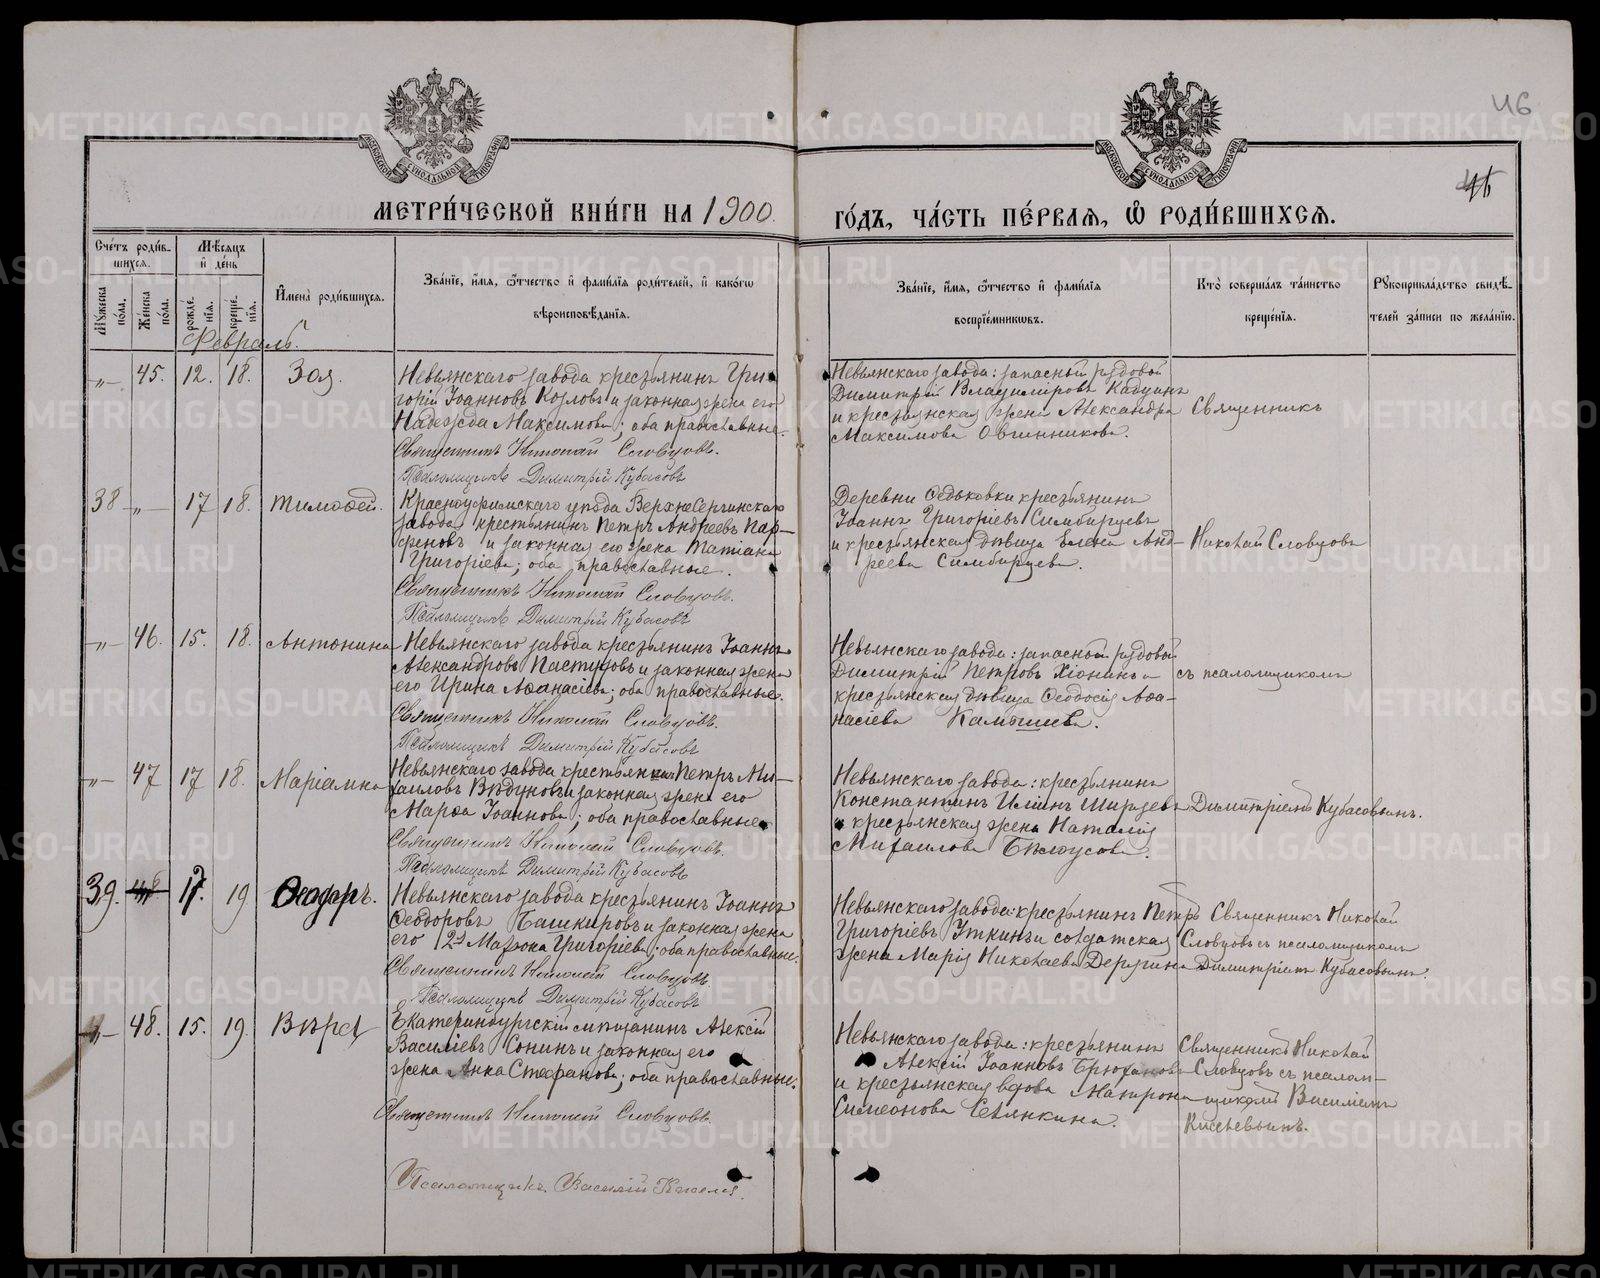 46
46
МЕТРИ́ЧЕСКОЙ КНИ́ГИ НА 1900. ГО́ДЪ, ЧА́СТЬ ПЕ́РВАѦ, Ѡ҆ РОДИ́ВШИХСѦ.
МОСКОВСКОЙ СѴНОДАЛЬНОЙ ТИПОГРАФІИ
МОСКОВСКОЙ СѴНОДАЛЬНОЙ ТИПОГРАФІИ
Сче́тъ роди́вшихсѧ.
Мꙋ́жеска по́ла.
Же́нска по́ла.
Мѣ́сѧцъ и҆ де́нь
рожде́нїѧ.
креще́нїѧ.
И҆мена̀ роди́вшихсѧ.
Зва́нїе, и҆́мѧ, ѻ҆́тчество и҆ фами́лїѧ роди́телей, и҆ како́гѡ
вѣроисповѣ́данїѧ.
Зва́нїе, и҆́мѧ, ѻ҆́тчество и҆ фами́лїѧ
воспрїе́мникѡвъ.
Кто̀ соверша́лъ та́инство
креще́нїѧ.
Рꙋкоприкла́дство свидѣ́телей за́писи по жела́нїю.
Февраль.
„ 45. 12. 18. Зоя.
Невьянскаго завода крестьянинъ Григорій Іоанновъ Козловъ и законная жена его
Надежда Максимова; оба православные.
Священникъ Николай Словцовъ.
Псаломщикъ Димитрій Кубасовъ
Невьянскаго завода: запасный рядовой
Димитрій Владиміровъ
и крестьянская жена Александра
Максимова Овчинникова.
Священникъ
38 „ 17 18. Тимоѳей.
Красноуфимскаго уѣзда ВерхнеСергинскаго
завода крестьянинъ Петръ Андреевъ Парфеновъ и законная его жена Татіана
Григоріева; оба православные.
Священникъ Николай Словцовъ.
Псаломщикъ Димитрій Кубасовъ
Деревни Ѳедьковки крестьянинъ
Іоаннъ Григоріевъ Симбирцевъ
и крестьянская дѣвица Елена Андреева Симбирцева.
Николай Словцовъ
„ 46. 15. 18. Антонина
Невьянскаго завода крестьянинъ Іоаннъ
Александровъ Пастуховъ и законная жена
его Ирина Аѳанасіева; оба православные.
Священникъ Николай Словцовъ.
Псаломщикъ Димитрій Кубасовъ
Невьянскаго завода: запасный рядовой
Димитрій Петровъ Хіонинъ и
крестьянская дѣвица Ѳеодосія Аѳанасіева Камышева.
съ псаломщикомъ
„ 47 17 18. Маріамна
Невьянскаго завода крестьянинъ Петръ Михаиловъ Вѣдуновъ и законная жена его
Марѳа Іоаннова; оба православные.
Священникъ Николай Словцовъ.
Псаломщикъ Димитрій Кубасовъ
Невьянскаго завода: крестьянинъ
Константинъ Иліинъ
и крестьянская жена Наталія
Михаилова Бѣлоусова.
Димитріемъ Кубасовымъ.
39. 48 17. 19 Ѳеодоръ.
Невьянскаго завода крестьянинъ Іоаннъ
Ѳеодоровъ Башкировъ и законная жена
его 2я Матрона Григоріева; оба православные.
Священникъ Николай Словцовъ.
Псаломщикъ Димитрій Кубасовъ
Невьянскаго завода: крестьянинъ Петръ
Григоріевъ Уткинъ и солдатская
жена Марія Николаева Дерягина
Священникъ Николай
Словцовъ съ псаломщикомъ
Димитріемъ Кубасовымъ.
„ 48. 15. 19. Вѣра
Екатеринбургскій мѣщанинъ Алексій
Василіевъ Сонинъ и законная его
жена Анна Стефанова; оба православные.
Священникъ Николай Словцовъ.
Псаломщикъ Василій Киселевъ.
Невьянскаго завода: крестьянинъ
Алексій Іоанновъ Брюхановъ
и крестьянская вдова Матрона
Симеонова Селянкина.
Священникъ Николай
Словцовъ съ псаломщикомъ Василіемъ
Киселевымъ.
METRIKI.GASO-URAL.RU